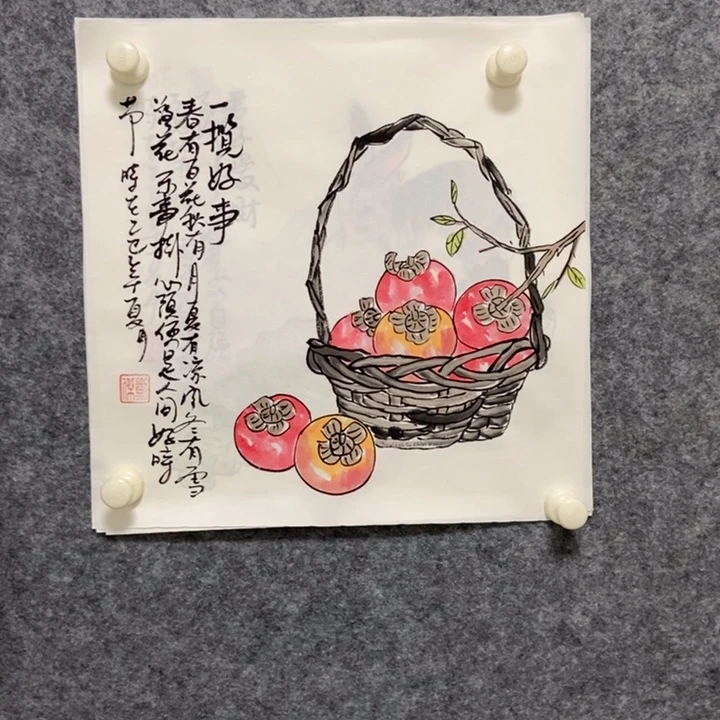 一攬好事
春有百花秋有月夏有凉风冬有雪
若無闲事掛心頭便是人间好時
节 時在乙巳年夏月